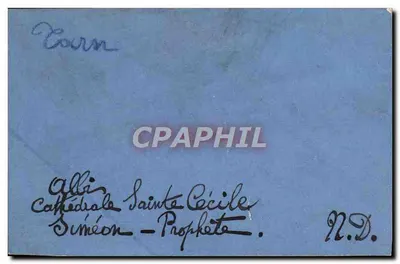 Tarn
CPAPHIL
Albi
Cathédrale Sainte Cécile
Siméon - Prophète.
N.D.